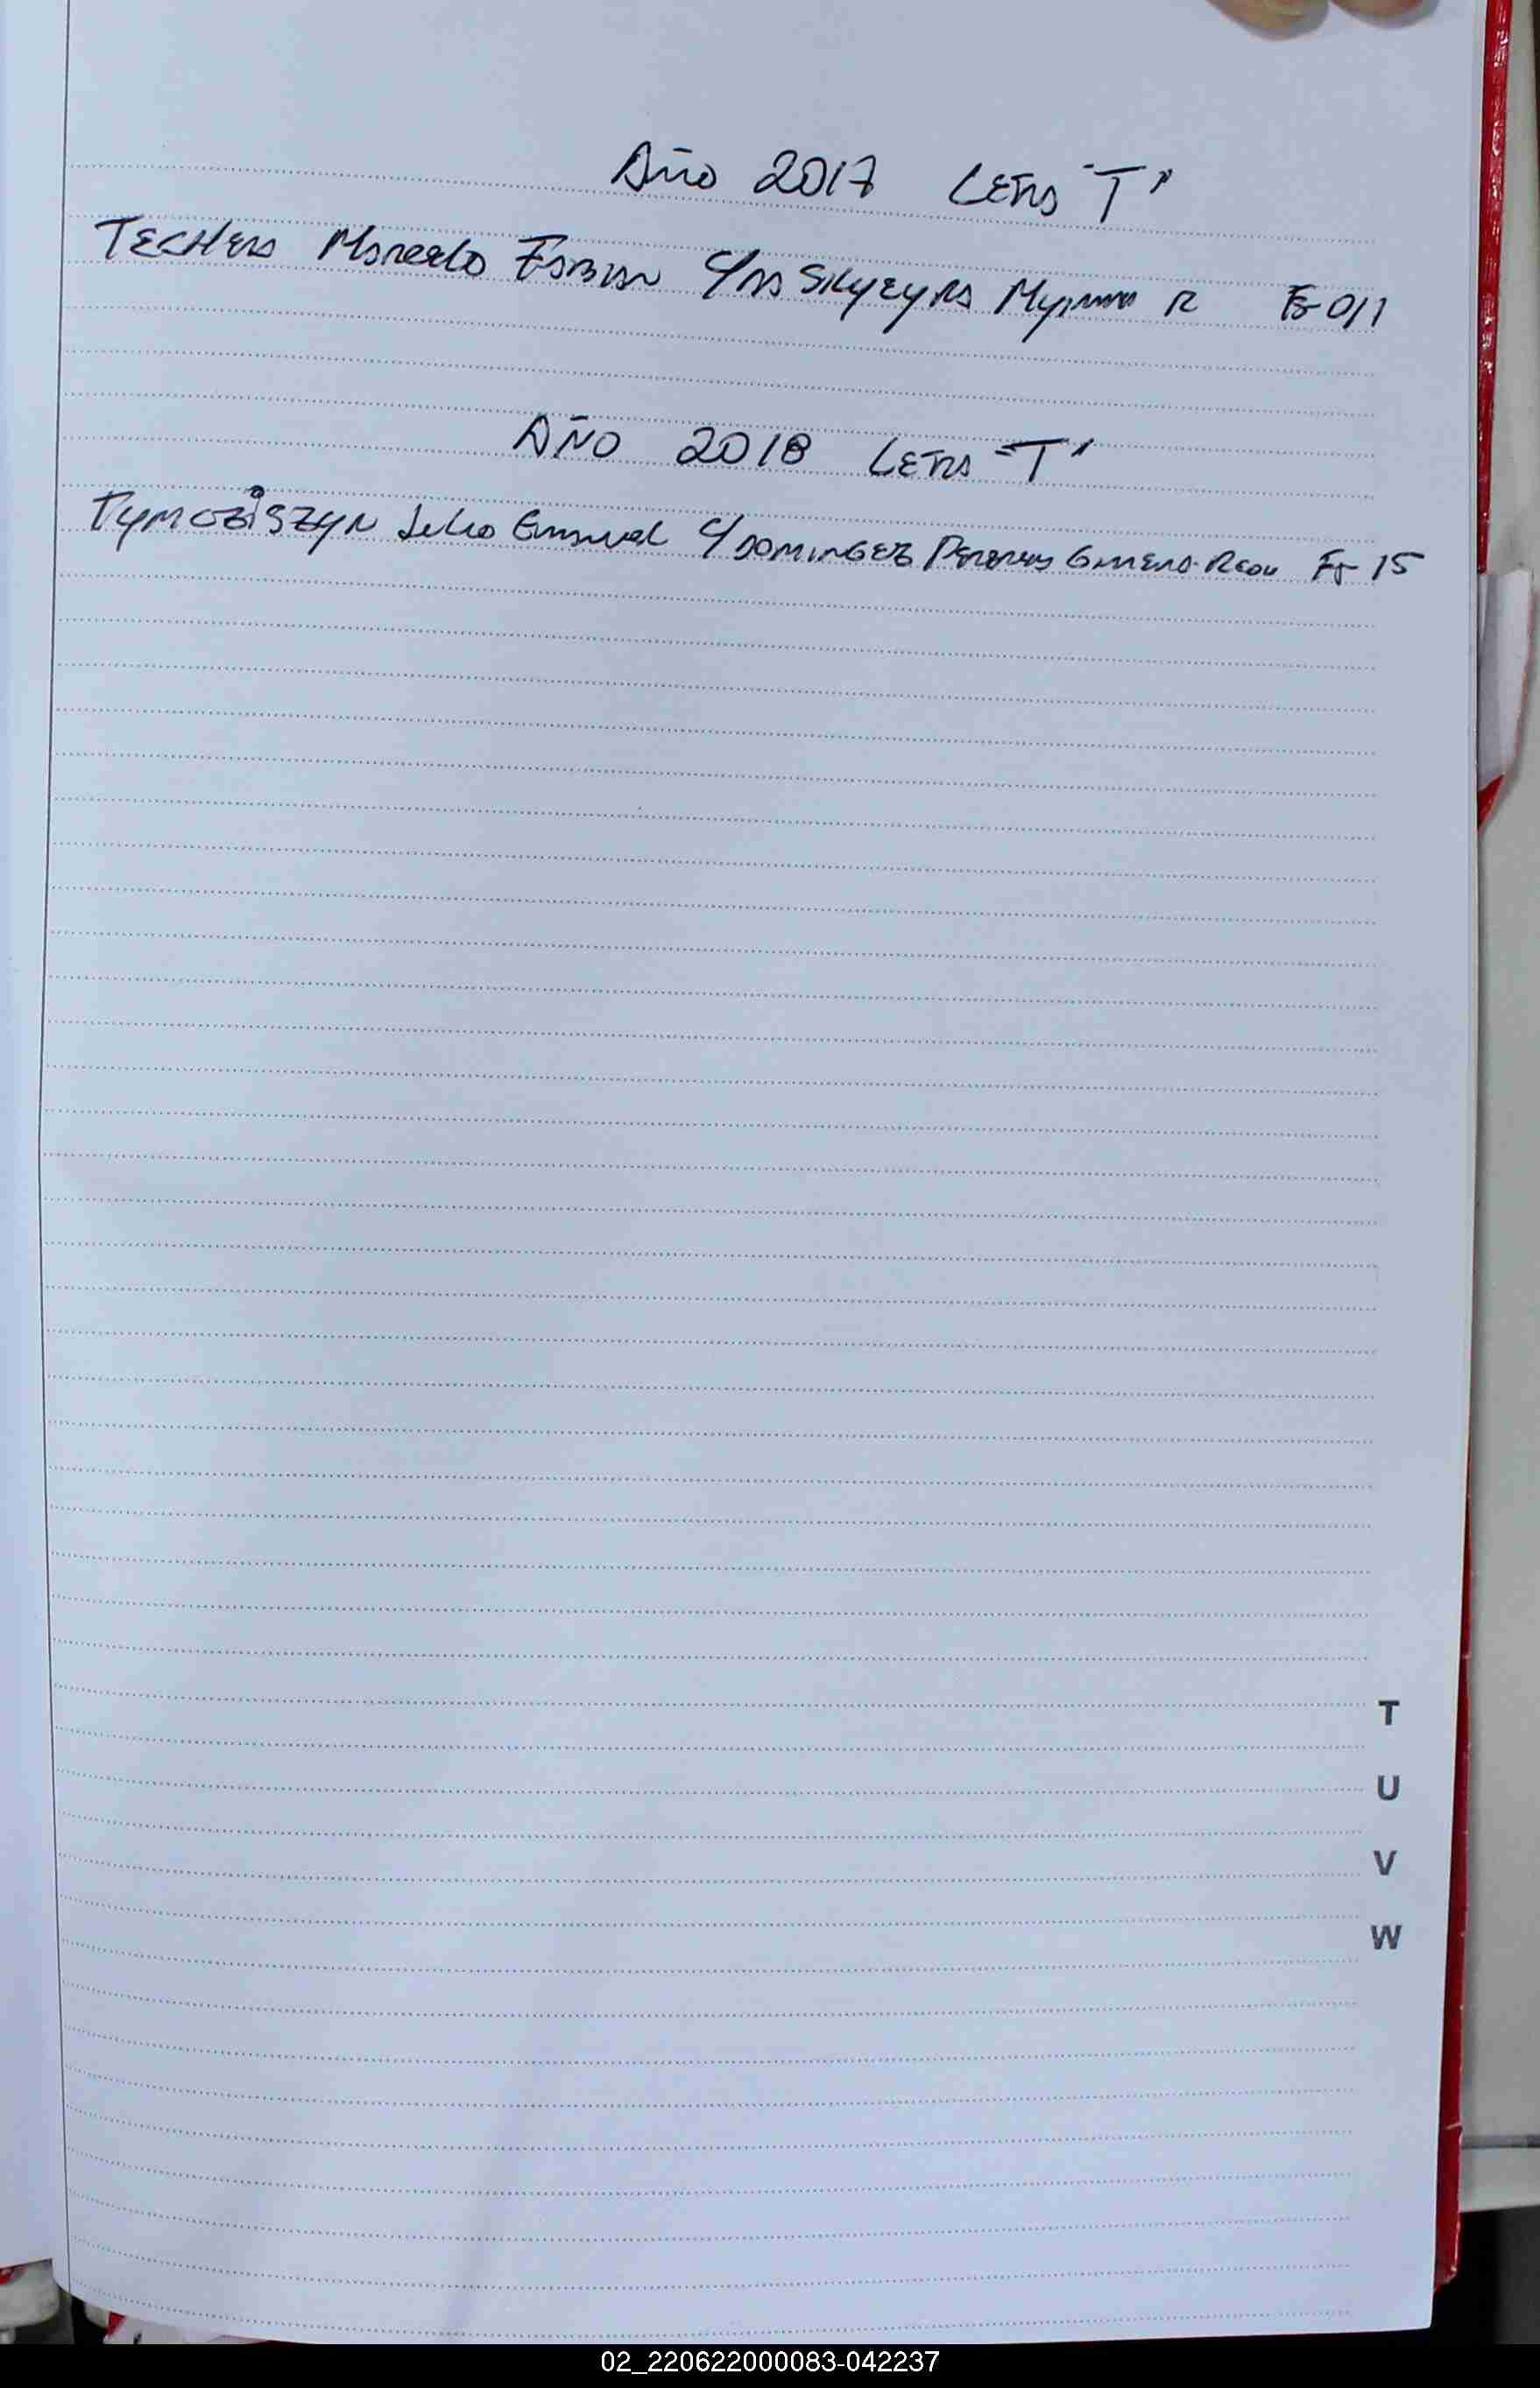 Año 2017 Letra "T"
TECHERA Marcelo Fabian C/ DA SILVEYRA Myriam R Fs 011
AÑO 2018 LETRA "T"
TYMCZISZYN Julio Emanuel C/ DOMINGUEZ Fs 15
T
U
V
W
02_220622000083-042237